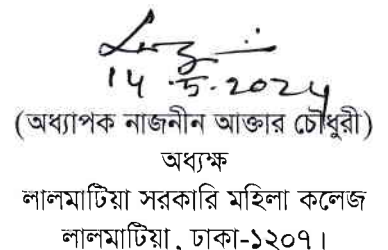 14.5.2024
(অধ্যাপক নাজনীন আক্তার চৌধুরী)
অধ্যক্ষ
লালমাটিয়া সরকারি মহিলা কলেজ
লালমাটিয়া, ঢাকা-১২০৭।